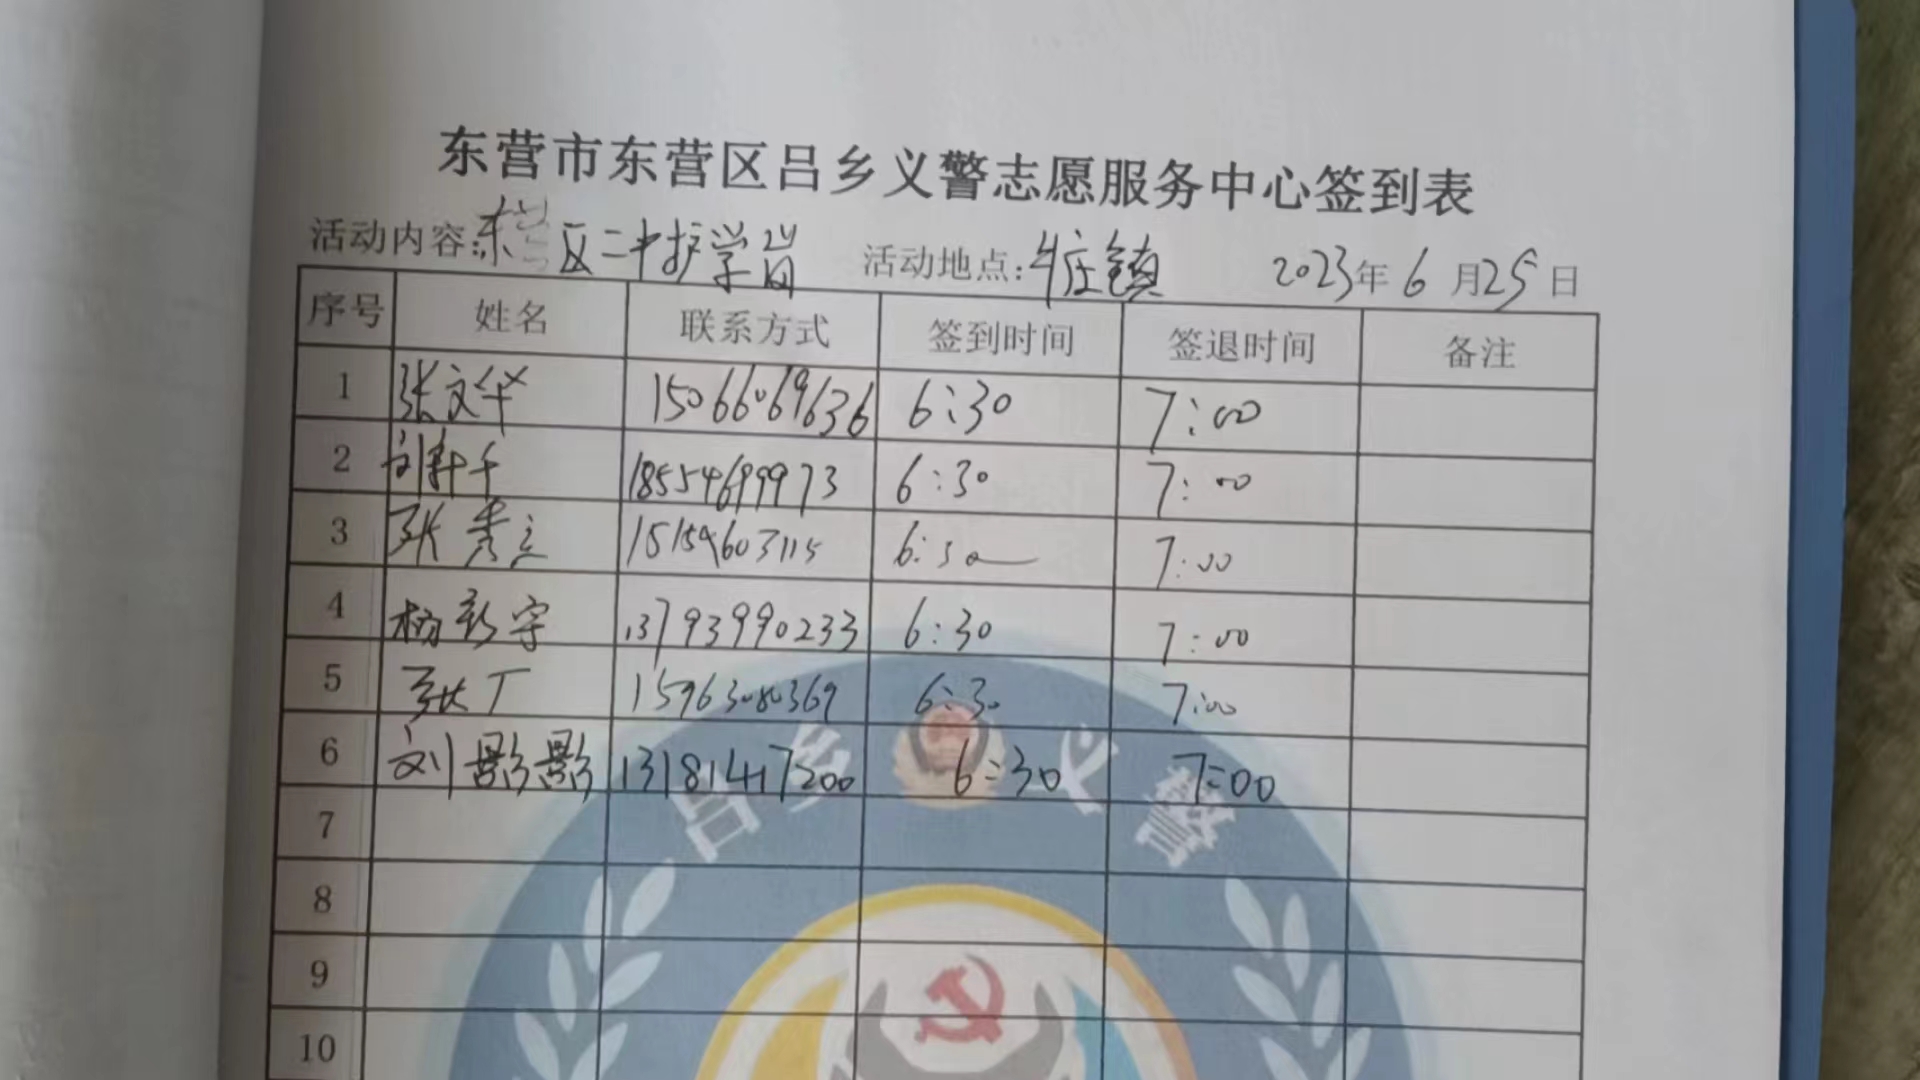 东营市东营区吕乡义警志愿服务中心签到表
活动内容:东营区二中护学岗 活动地点:牛庄镇 2023年6月25日
序号 姓名 联系方式 签到时间 签退时间 备注
1 张文华 15066069636 6:30 7:00
2 18554699973 6:30 7:00
3 张秀立 15154603115 6:30 7:00
4 杨彩宇 13793990233 6:30 7:00
5 张丁 15963080369 6:30 7:00
6 刘影影 13181417200 6:30 7:00
7
8
9
10
吕乡义警